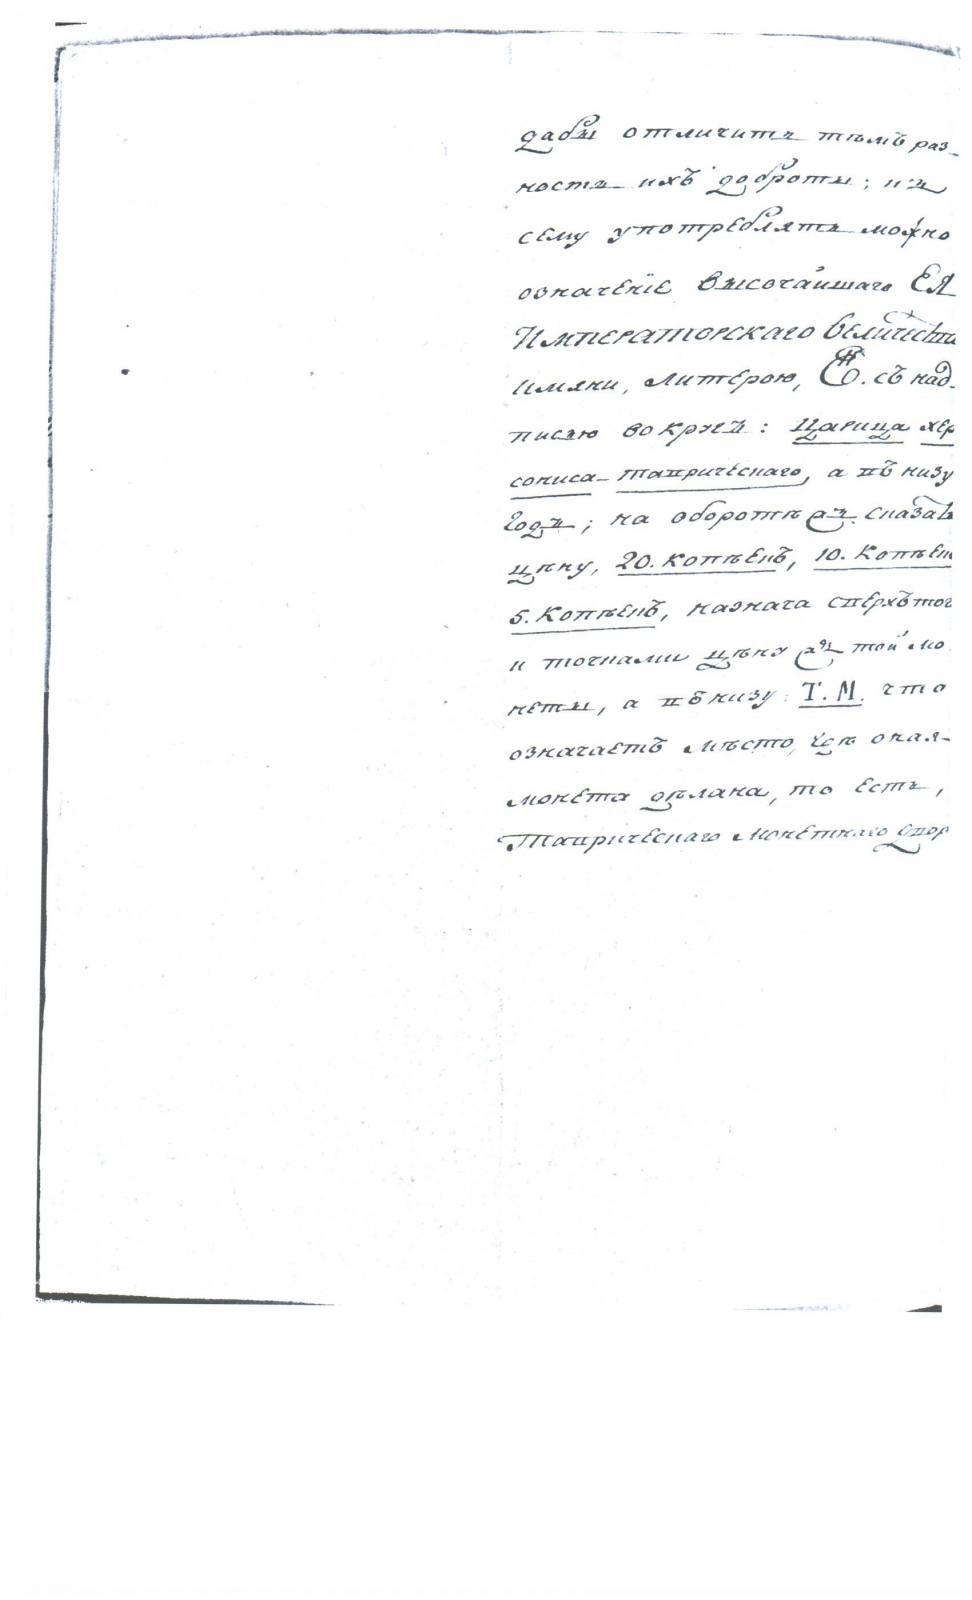 дабы отличить тѣмъ раз-
ность ихъ доброты; къ
сему употреблять можно
означенїе высочайшаго ЕЯ
Императорскаго Величества
имяни, литерою, Е. съ над-
писью вокругъ: Царица хер
сониса-таврическаго, а въ низу
годъ; на оборотѣ ея. сказать
цѣну, 20. копѣекъ, 10. копѣек
5. копѣекъ, назнача сверхъ тог
и точками цѣну ея той мо
неты, а въ низу: Т. М. что
означаетъ мѣсто, гдѣ оная-
монета дѣлана, то есть,
Таврическаго монетнаго двор